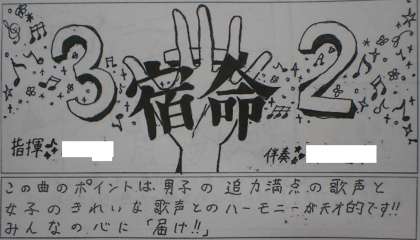 3 宿命 2
指揮
伴奏
この曲のポイントは男子の追力満点の歌声と
女子のきれいな歌声とのハーモニーが天才的です!!
みんなの心に「届け!!」